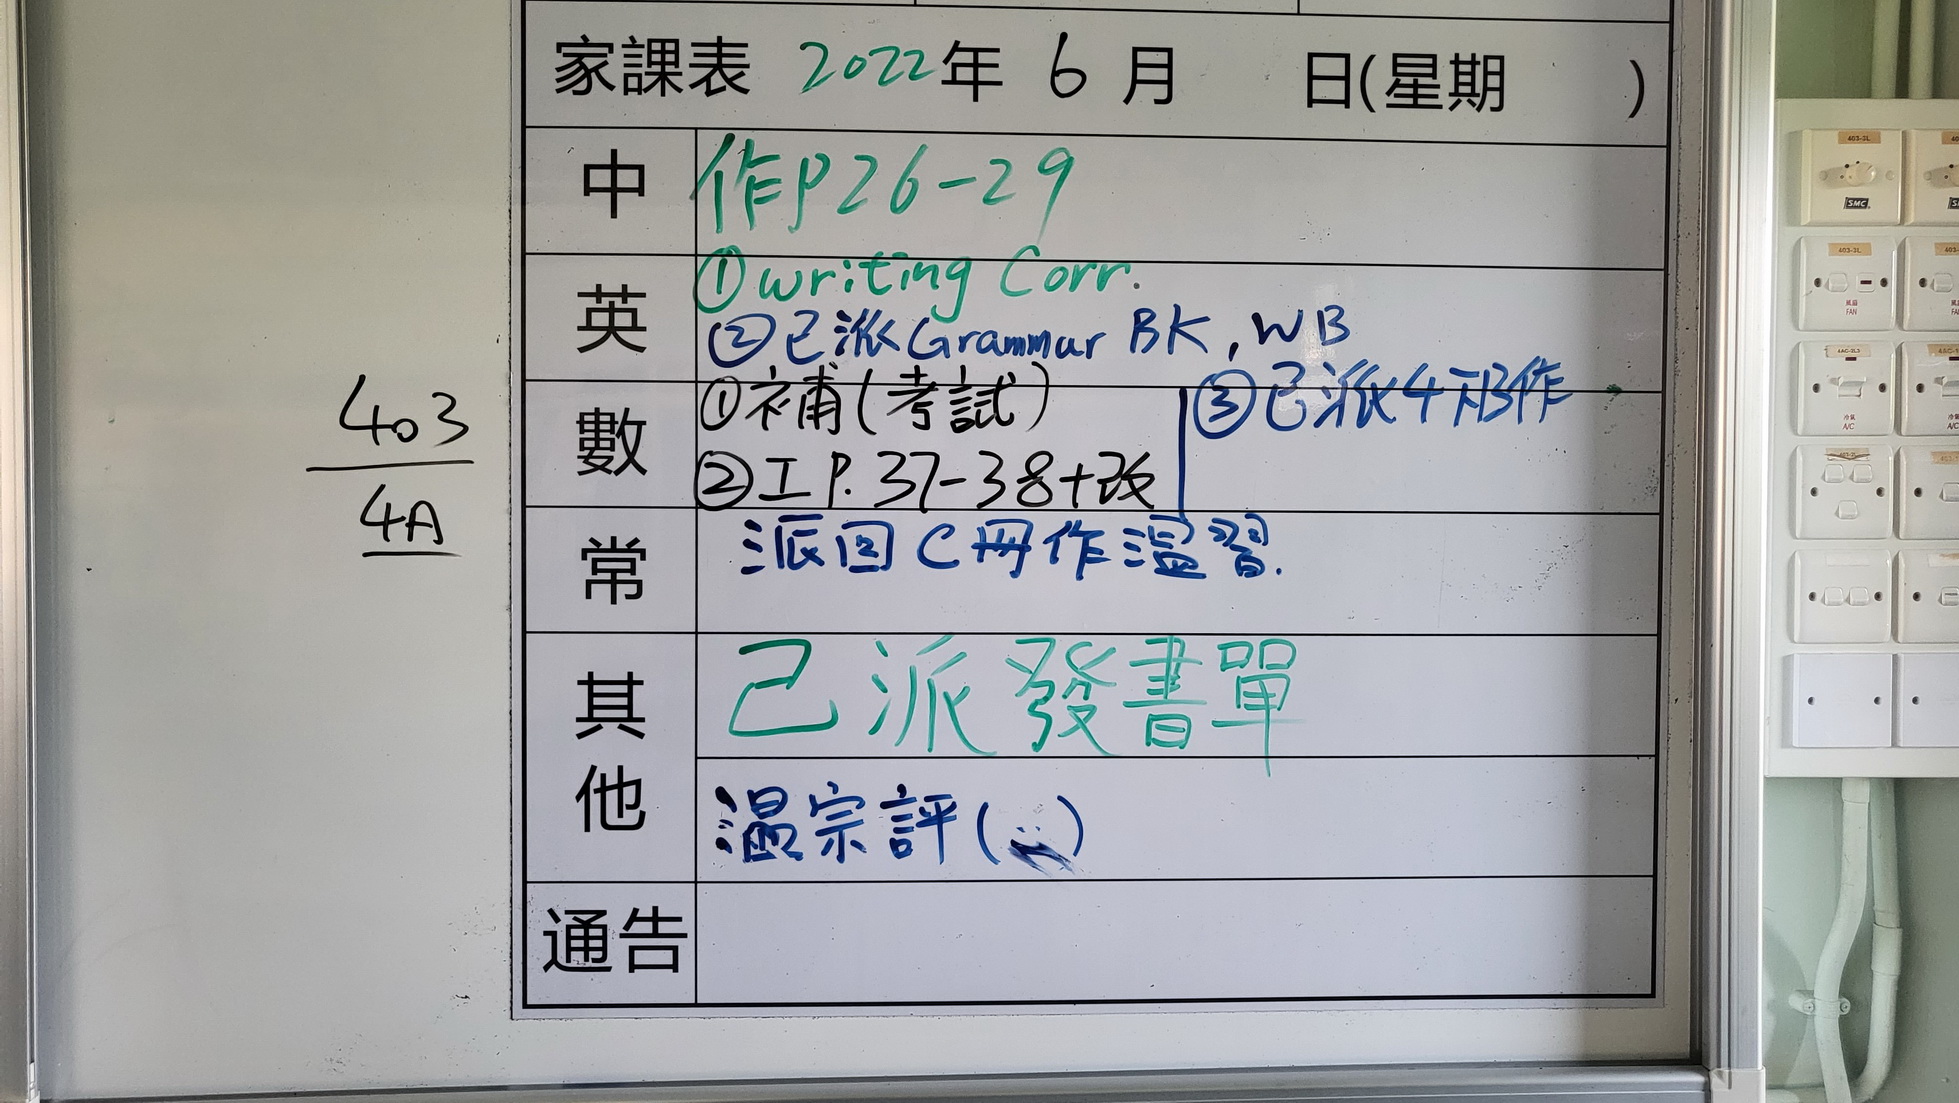 家課表 2022年 6 月 日(星期 )
中 作P26-29
英 ①writing Corr.
②已派Grammar BK, WB
數 ①補(考試)
②工P.37-38+改
③已派4下B作
常 派回C冊作溫習.
其他 已派發書單
溫宗評( )
通告
403
4A
403-3L
SMC
403-3L
風扇
FAN
冷氣
A/C